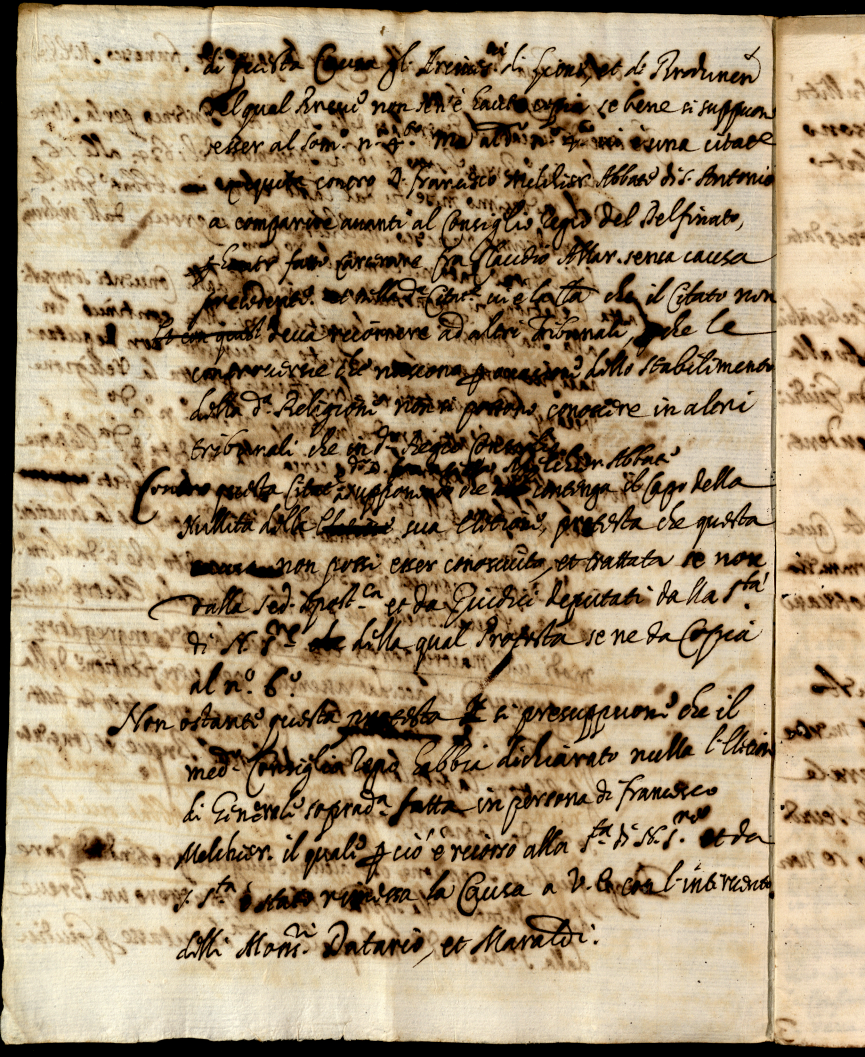 di questa Causa gl. di et di
del qual Breve non sen'è hauuta copia se bene si suppon
esser al Som.o n. 4.o Ma una citat.e
esequita contro D. Francesco Melchior Abbate di S. Antonio
a comparire auanti al Consiglio Regio del Delfinato,
hauer fatto carcerare fra Claudio Allar. senza causa
precedente. et nella d.a Citat.e ui è la che il Citato non
deua ricorrere ad altri Tribunali, che le
controuersie che nascono dello stabilimento
della d.a Religione non si possono conoscere in altri
tribunali che in d.o Regio Consiglio
d.o D. Francesco Melchior Abbate
Contro questa Citat.e supponendo che contenga il Capo della
Nullità della sua Elettione, protesta che questa
non possi esser conosciuta, et trattata se non
dalla Sed. Apost.ca et da Giudici deputati dalla S.tà
di N. S.re della qual Protesta se ne da Copia
al n.o 6.o
Non ostante questa protesta si presuppone che il
med.o Consiglio Regio habbia dichiarato nulla l'Elettion
di Generale soprad.a fatta in persona di Francesco
Melchior. il quale p ciò è ricorso alla S.tà di N. S.re et da
S. S.tà è stata rimessa la Causa a V. E. con l'interuento
delli Mons.ri Datario, et Maraldi.